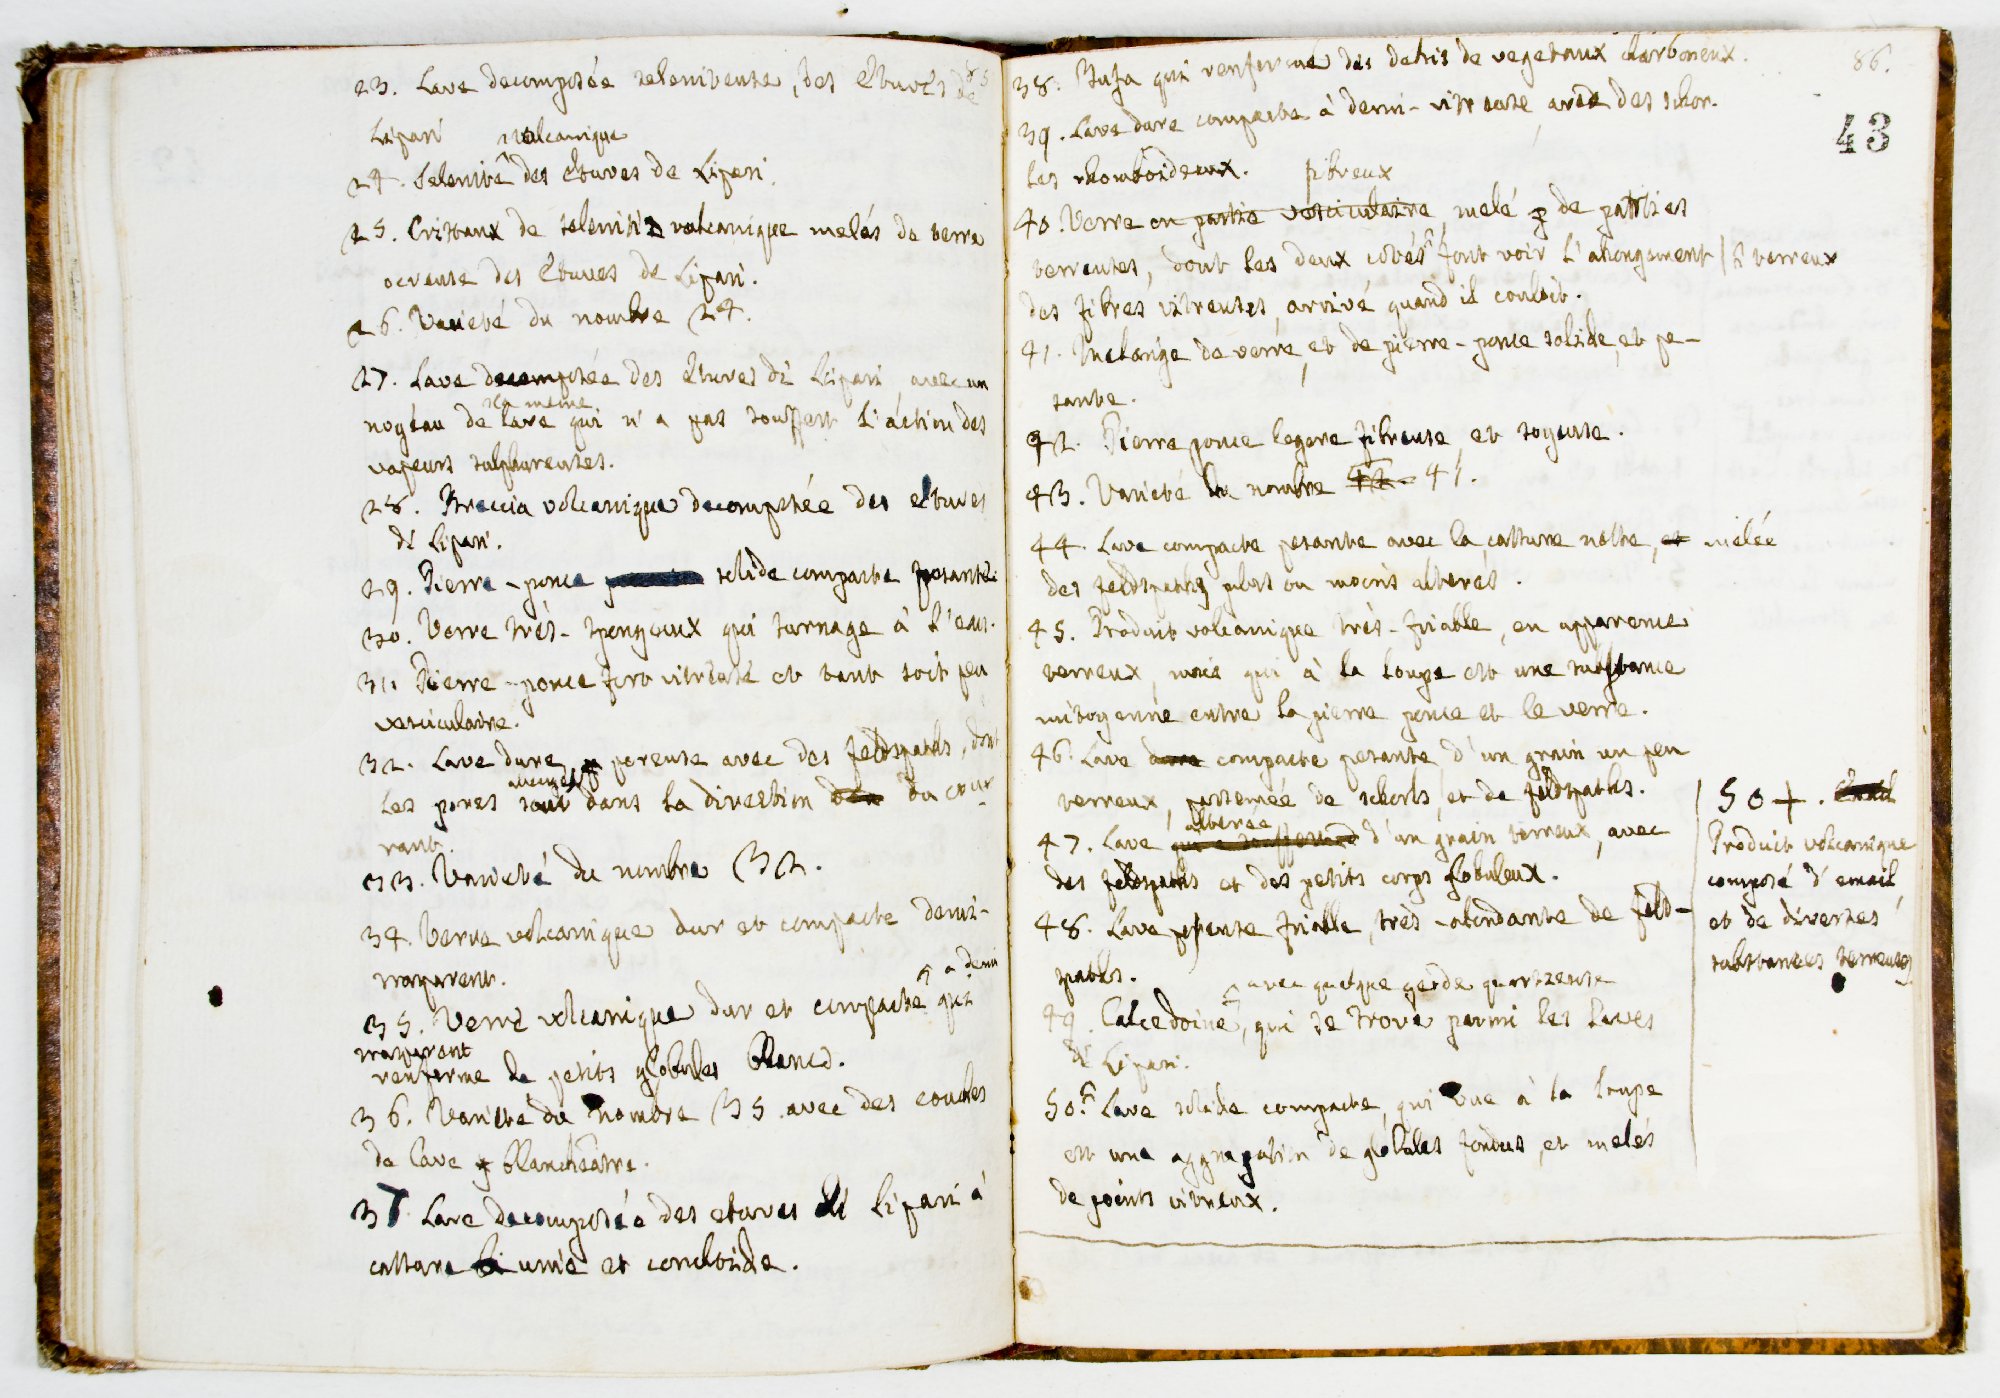 85
23. Lave decomposée seleniteuse, des Etuves de
Lipari
volcanique
24. Selenite des Etuves de Lipari.
25. Cristaux de selenite volcanique melés de terre
ocreuse des Etuves de Lipari.
26. Varieté du nombre 24.
27. Lave decomposée des Etuves di Lipari avec un
la meme
noyéau de lave qui n'a pas souffert l'áction des
vapeurs sulphureuses.
28. Breccia volcanique decomposée des etuves
di Lipari.
29. Pierre-ponce solide compacte pesante.
30. Verre très-spongieux qui surnage à l'eau.
31. Pierre-ponce fort vitreuse et tant soit peu
vesiculaire.
32. Lave dure, poreuse avec des feldspaths, dont
les pores sont dans la direction du cou-
rant.
33. Varieté du nombre 32.
34. Verre volcanique dur et compacte demi-
trasparent.
a demi
35. Verre volcanique dur et compacte qui
trasparent
renferme de petits globules blancs.
36. Varieté du nombre 35 avec des couches
de lave blancheatre.
37 Lave decomposée des etuves di Lipari à
cassure unie et conchoide.
86.
43
38. Tufa qui renferme des debris de vegetaux charboneux.
39. Lave dure compacte à demi-vitreuse avec des schor-
les rhomboideaux.
fibreux
40. Verre en partie vesciculaire, melé de parties
terreuses, dont les deux cotés font voir l'alongement | terreux
des fibres vitreuses, arrivé quand il couloit.
41. Melange de verre, et de pierre-ponce solide, et pe-
sante.
42. Pierre ponce legere fibreuse, et soyeuse.
43. Varieté du nombre 42 41.
44. Lave compacte pesante avec la cassure nette, et melée
des feldspaths plus ou moins alterés.
45. Produit volcanique très-friable, en apparence
terreux, mais qui à la loupe est une substance
mitoyenne entre la pierre ponce et le verre.
46. Lave dure compacte pesante d'un grain un peu
terreux, parsemée de schorls, et de feldspaths.
alterée
47. Lave d'un grain terreux, avec
des feldspaths et des petits corps globuleux.
48. Lave poreuse friable, très-abondante de feld-
spaths.
avec quelque geode quartzeuse
49. Calcedoine, qui se trove parmi les laves
di Lipari.
50. Lave solide compacte, qui vue à la loupe
est une aggregation de globules fondus, et melés
de points vitreux.
50+.
Produit volcanique
composé d'email
et de diverses
substances terreuses